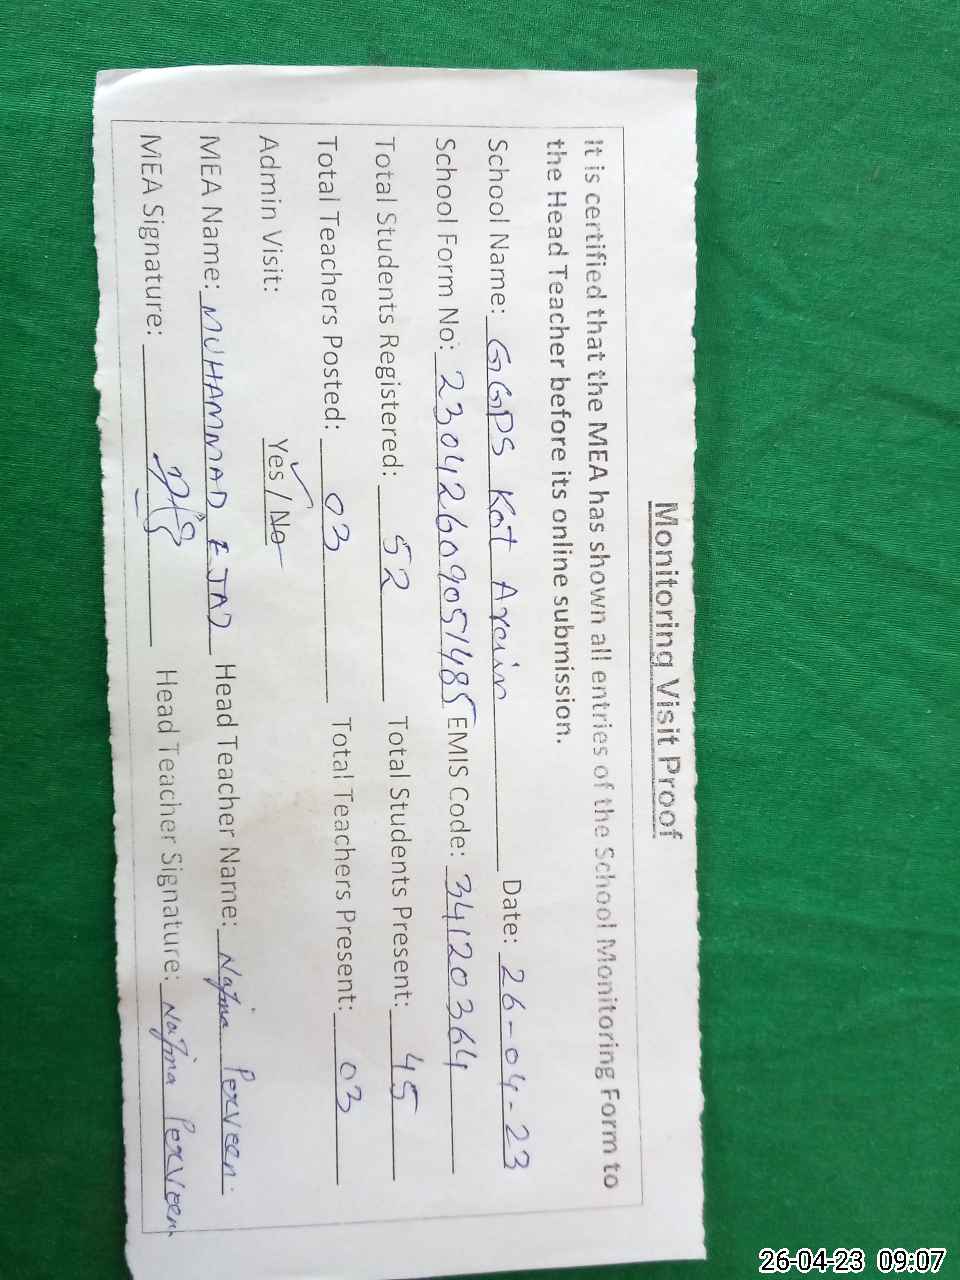 Monitoring Visit Proof
It is certified that the MEA has shown all entries of the School Monitoring Form to
the Head Teacher before its online submission.
School Name: GGPS Kot Arain Date: 26-04-23
School Form No: 23042609051485 EMIS Code: 34120364
Total Students Registered: 52 Total Students Present: 45
Total Teachers Posted: 03 Total Teachers Present: 03
Admin Visit: Yes / No
MEA Name: MUHAMMAD EJAZ Head Teacher Name: Najma Perveen
MEA Signature: Head Teacher Signature: Najma Perveen
26-04-23 09:07